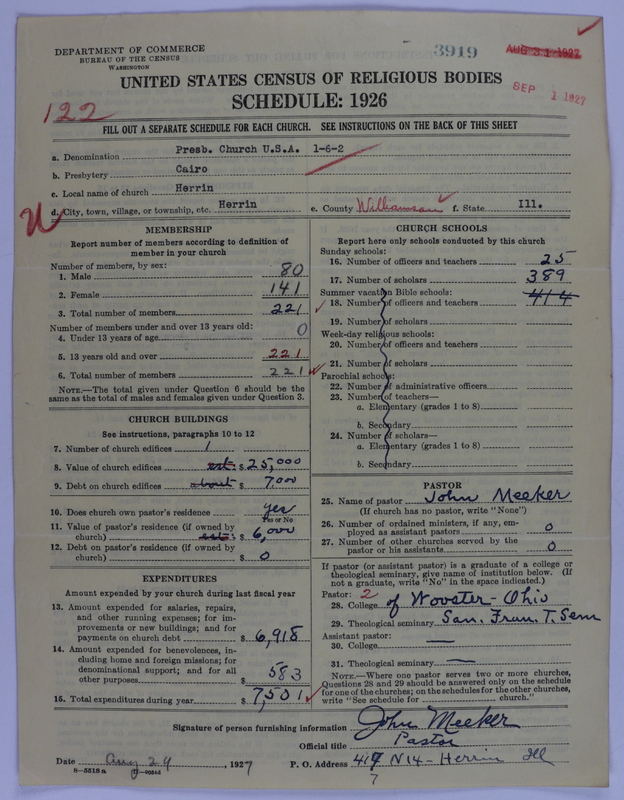 DEPARTMENT OF COMMERCE
BUREAU OF THE CENSUS
WASHINGTON
3919
AUG 31 1927
SEP 1 1927
UNITED STATES CENSUS OF RELIGIOUS BODIES
SCHEDULE: 1926
122
FILL OUT A SEPARATE SCHEDULE FOR EACH CHURCH. SEE INSTRUCTIONS ON THE BACK OF THIS SHEET
a. Denomination Presb. Church U.S.A. 1-6-2
b. Presbytery Cairo
c. Local name of church Herrin
d. City, town, village, or township, etc. Herrin e. County Williamson f. State Ill.
MEMBERSHIP
Report number of members according to definition of member in your church
Number of members, by sex:
1. Male 80
2. Female 141
3. Total number of members 221
Number of members under and over 13 years old:
4. Under 13 years of age 0
5. 13 years old and over 221
6. Total number of members 221
NOTE.—The total given under Question 6 should be the same as the total of males and females given under Question 3.
CHURCH BUILDINGS
See instructions, paragraphs 10 to 12
7. Number of church edifices 1
8. Value of church edifices est. $ 25,000
9. Debt on church edifices about $ 7000
10. Does church own pastor's residence yes
Yes or No
11. Value of pastor's residence (if owned by church) est. $ 6,000
12. Debt on pastor's residence (if owned by church) $ 0
EXPENDITURES
Amount expended by your church during last fiscal year
13. Amount expended for salaries, repairs, and other running expenses; for improvements or new buildings; and for payments on church debt $ 6,918
14. Amount expended for benevolences, including home and foreign missions; for denominational support; and for all other purposes $ 583
15. Total expenditures during year $ 7,501
CHURCH SCHOOLS
Report here only schools conducted by this church
Sunday schools:
16. Number of officers and teachers 25
17. Number of scholars 389
Summer vacation Bible schools: 414
18. Number of officers and teachers
19. Number of scholars
Week-day religious schools:
20. Number of officers and teachers
21. Number of scholars
Parochial schools:
22. Number of administrative officers
23. Number of teachers—
a. Elementary (grades 1 to 8)
b. Secondary
24. Number of scholars—
a. Elementary (grades 1 to 8)
b. Secondary
PASTOR
25. Name of pastor John Meeker
(If church has no pastor, write "None")
26. Number of ordained ministers, if any, employed as assistant pastors 0
27. Number of other churches served by the pastor or his assistants 0
If pastor (or assistant pastor) is a graduate of a college or theological seminary, give name of institution below. (If not a graduate, write "No" in the space indicated.)
Pastor: 2
28. College of Wooster - Ohio
29. Theological seminary San. Fran. T. Sem
Assistant pastor:
30. College —
31. Theological seminary —
NOTE.—Where one pastor serves two or more churches, Questions 28 and 29 should be answered only on the schedule for one of the churches; on the schedules for the other churches, write "See schedule for ______ church."
Signature of person furnishing information John Meeker
Official title Pastor
Date Aug 29, 1927 P. O. Address 417 N 14 - Herrin Ill
7
8—5518a